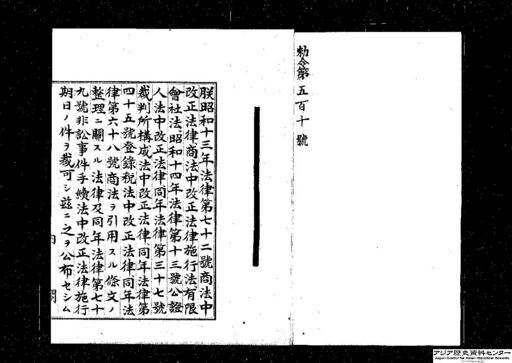 勅令第五百十號
朕昭和十三年法律第七十二號商法中
改正法律商法中改正法律施行法有限
會社法、昭和十四年法律第十三號公證
人法中改正法律同年法律第三十七號
裁判所構成法中改正法律、同年法律第
四十五號登錄稅法中改正法律、同年法
律第六十八號商法ヲ引用スル條文ノ
整理ニ關スル法律及同年法律第七十
九號非訟事件手續法中改正法律施行
期日ノ件ヲ裁可シ茲ニ之ヲ公布セシム
内閣
アジア歴史資料センター
Japan Center for Asian Historical Records